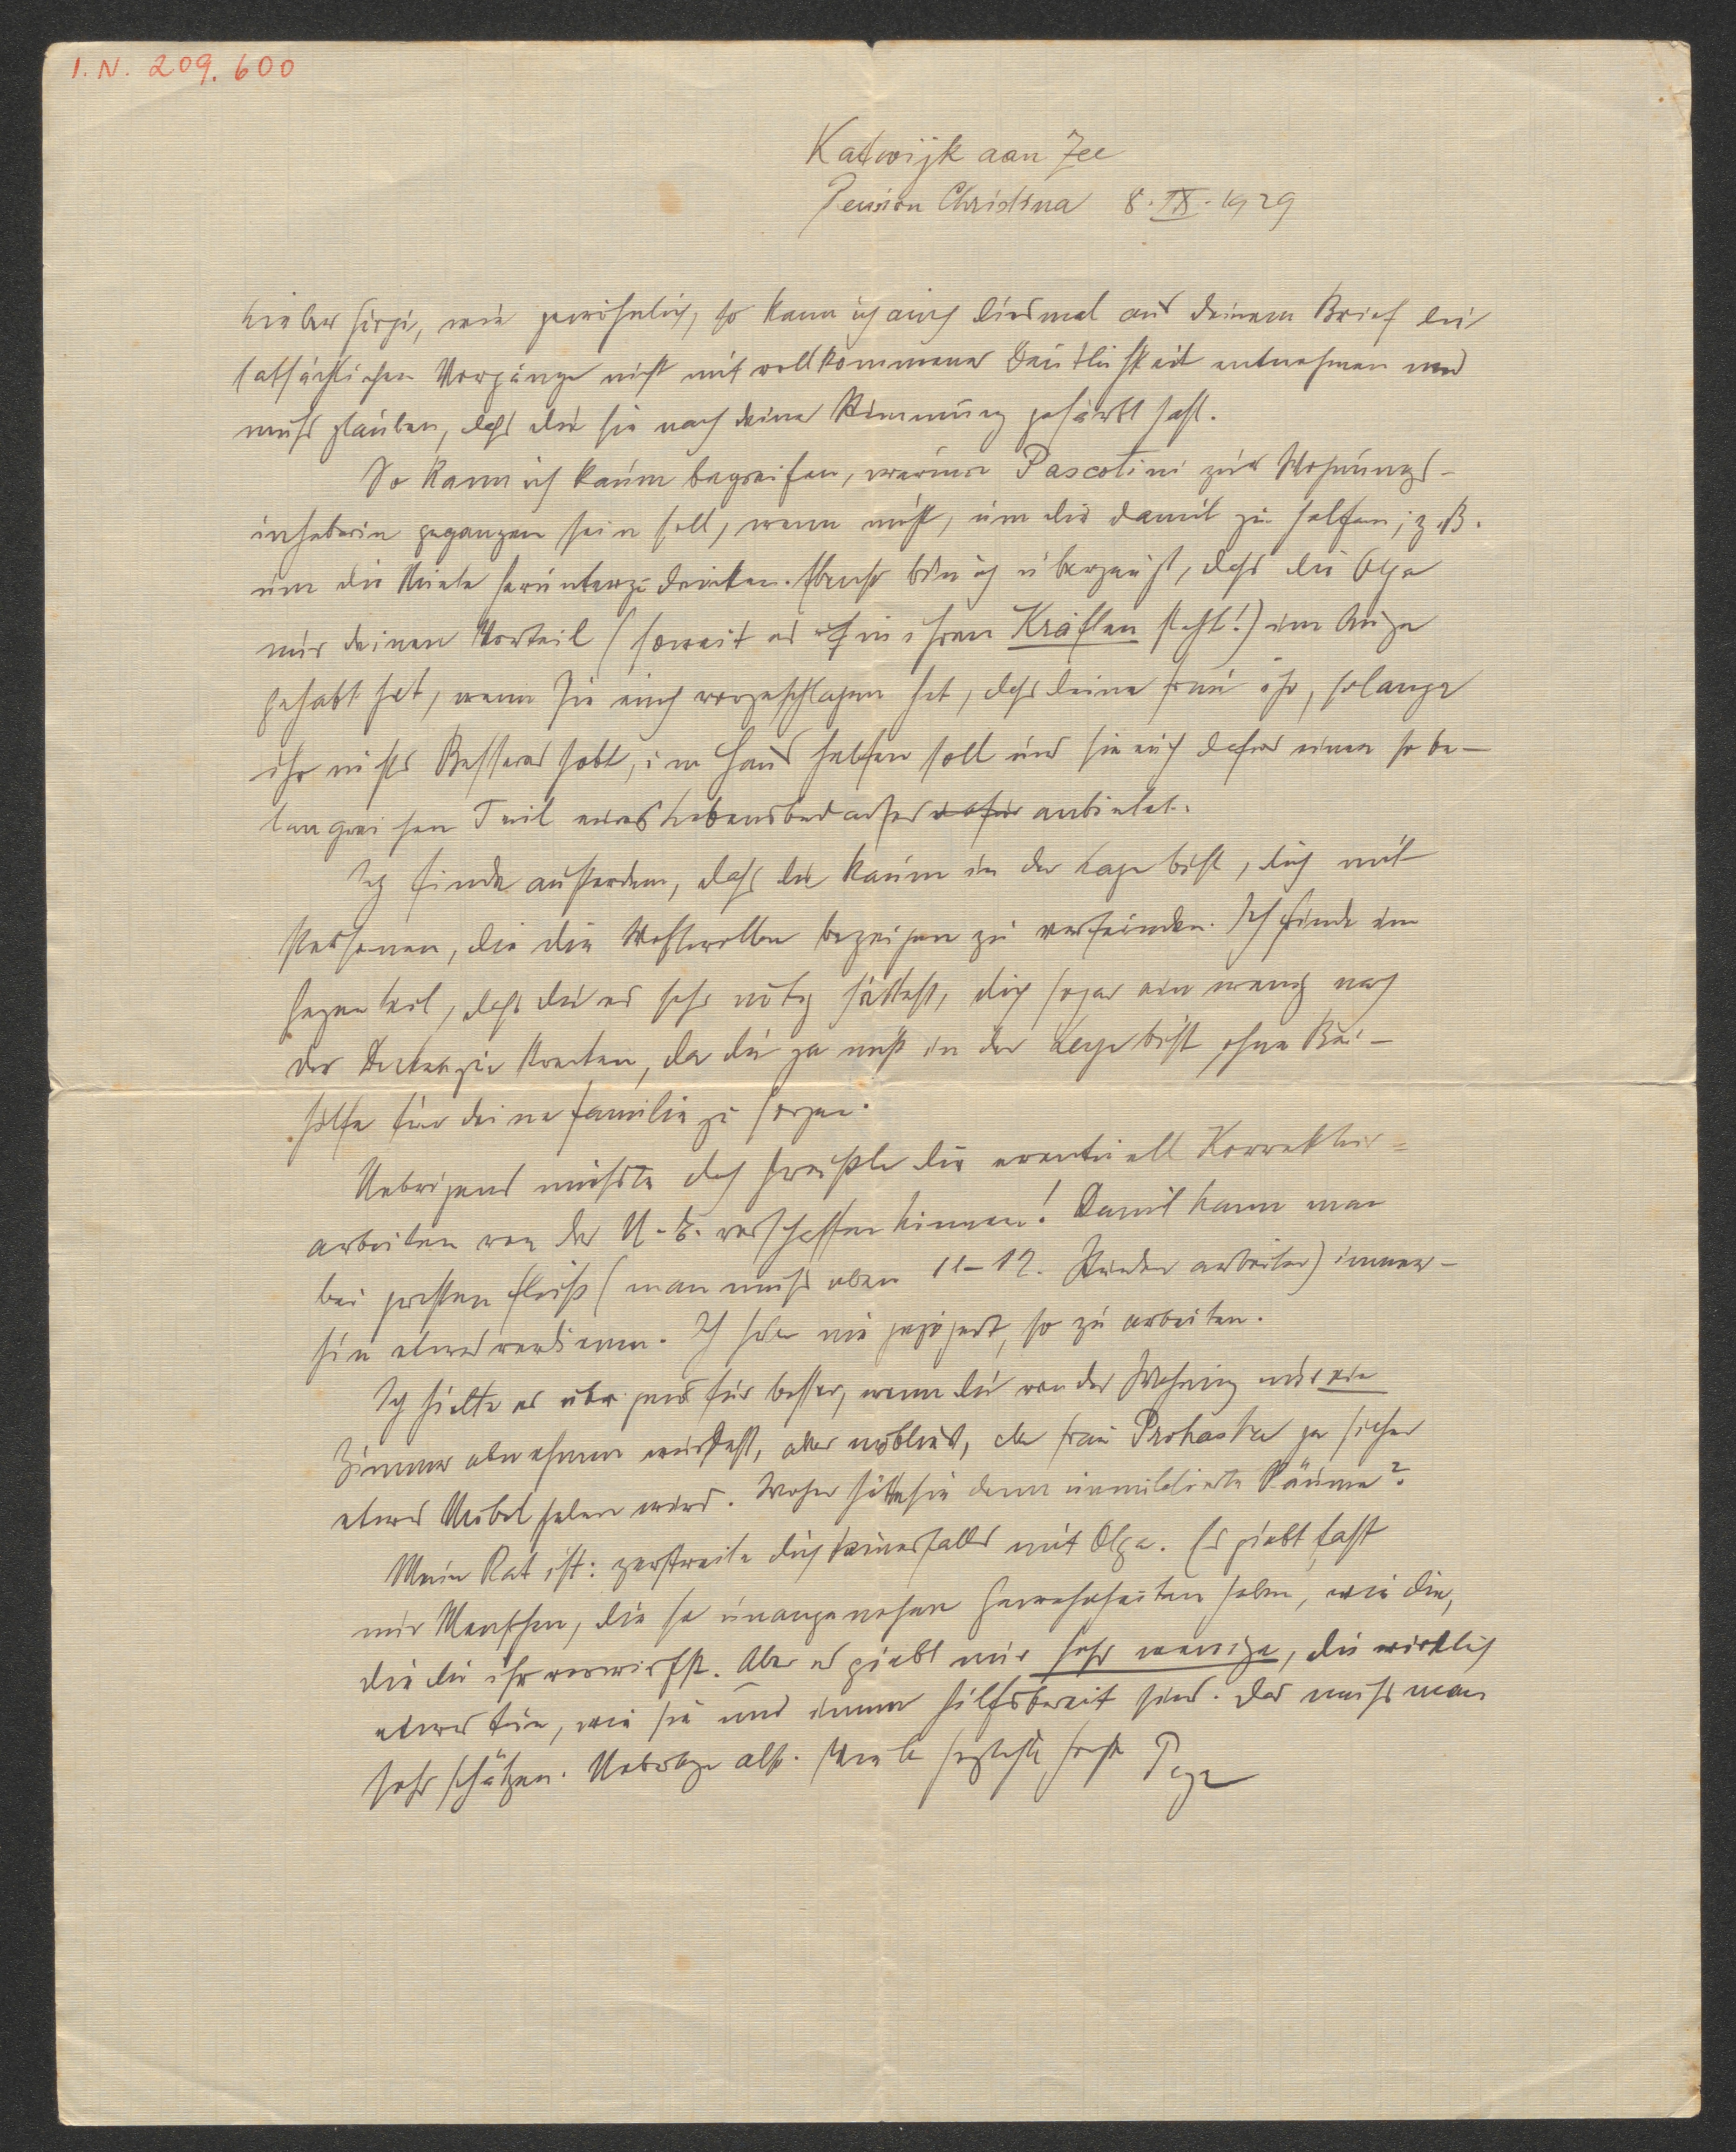 I. N. 209. 600
Katwijk aan Zee
Pension Christina 8. IX. 1929
Lieber Görgi, wie gewöhnlich, so kann ich auch diesmal aus deinem Brief die
tatsächlichen Vorgänge nicht mit vollkommener Deutlichkeit entnehmen und
muss glauben, dass du sie nach deiner Stimmung gefärbt hast.
So kann ich kaum begreifen, warum Pascotini zur Wohnungs-
inhaberin gegangen sein soll, wenn nicht, um dir damit zu helfen; z. B.
um die Miete herunterzudrücken. Ebenso bin ich überzeugt, dass die Olga
nur deinen Vorteil (soweit es in ihren Kräften steht!) im Auge
gehabt hat, wenn sie euch vorgeschlagen hat, dass deine Frau ihr, solange
ihr nichts Besseres habt, im Haus helfen soll und sie euch dafür einen so be-
langreichen Teil eures Lebensbedarfes dafür anbietet.
Ich finde ausserdem, dass du kaum in der Lage bist, dich mit
Personen, die dir Wohlwollen bezeigen zu verfeinden. Ich finde im
Gegenteil, dass du es sehr nötig hättest, dich sogar ein wenig nach
der Decke zu strecken, da du ja nicht in der Lage bist, ohne Bei-
hilfe für deine Familie zu sorgen.
Uebrigens müsste doch dir eventuell Korrektur-
arbeiten von der U.-E. verschaffen können! Damit kann man
bei grossem Fleiß (man muss eben 11-12. Stunden arbeiten) immer-
hin etwas verdienen. Ich habe nie gezögert, so zu arbeiten.
Ich hielte es übrigens für besser, wenn du von der Wohnung nur ein
Zimmer abnehmen würdest, aber möbliert, da Frau Prohaska ja sicher
etwas Möbel haben wird. Woher hätte sie denn unmöblierte Räume?
Mein Rat ist: zerstreite dich keinesfalls mit Olga. Es giebt fast
nur Menschen, die so unangenehme Gewohnheiten haben, wie die,
die du ihr vorwirfst. Aber es giebt nur sehr wenige, die wirklich
etwas tun, wie sie und immer hilfsbereit sind. Das muss man
sehr schätzen. Ueberlege also. Viele herzlichste Grüße